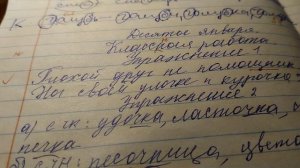 Десятое января
Классная работа
Упражнение 1
Плохой друг не помощник
На своей улочке и курочка
Упражнение 2
а) с чк: удочка, ласточка,
печка
б) с чн: песочница, цвето